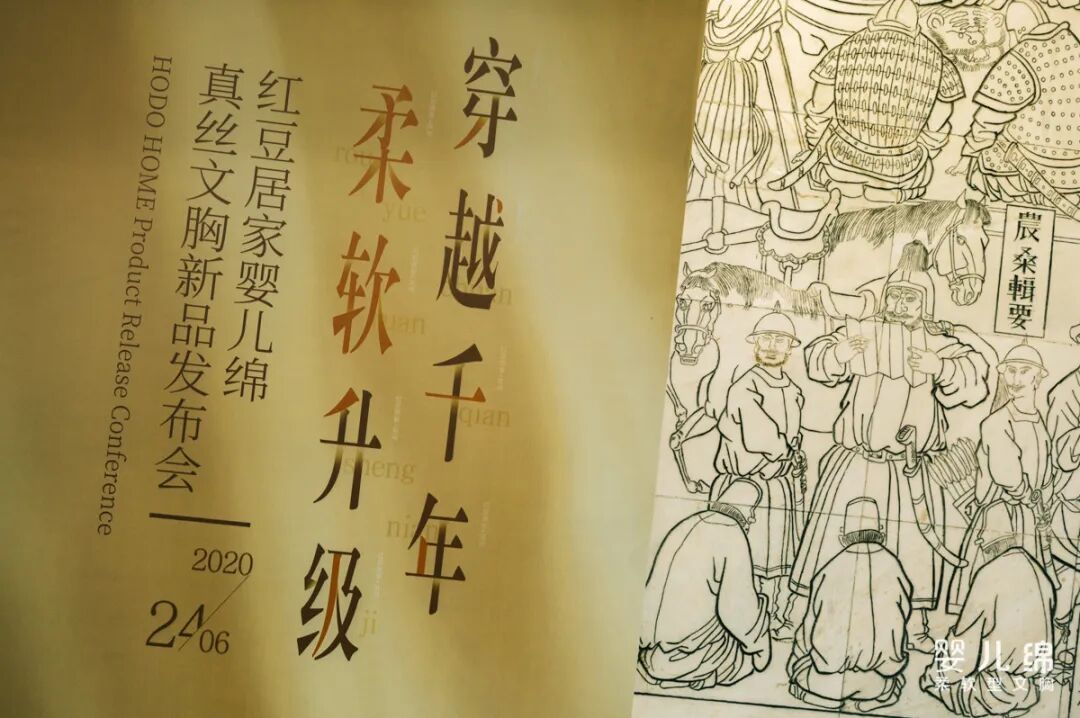 穿越千年
柔软升级
chuan
yue
qian
nian
rou
ruan
sheng
ji
红豆居家婴儿绵
真丝文胸新品发布会
HODO HOME Product Release Conference
2020
24/06
農桑輯要
婴儿绵
柔软型文胸